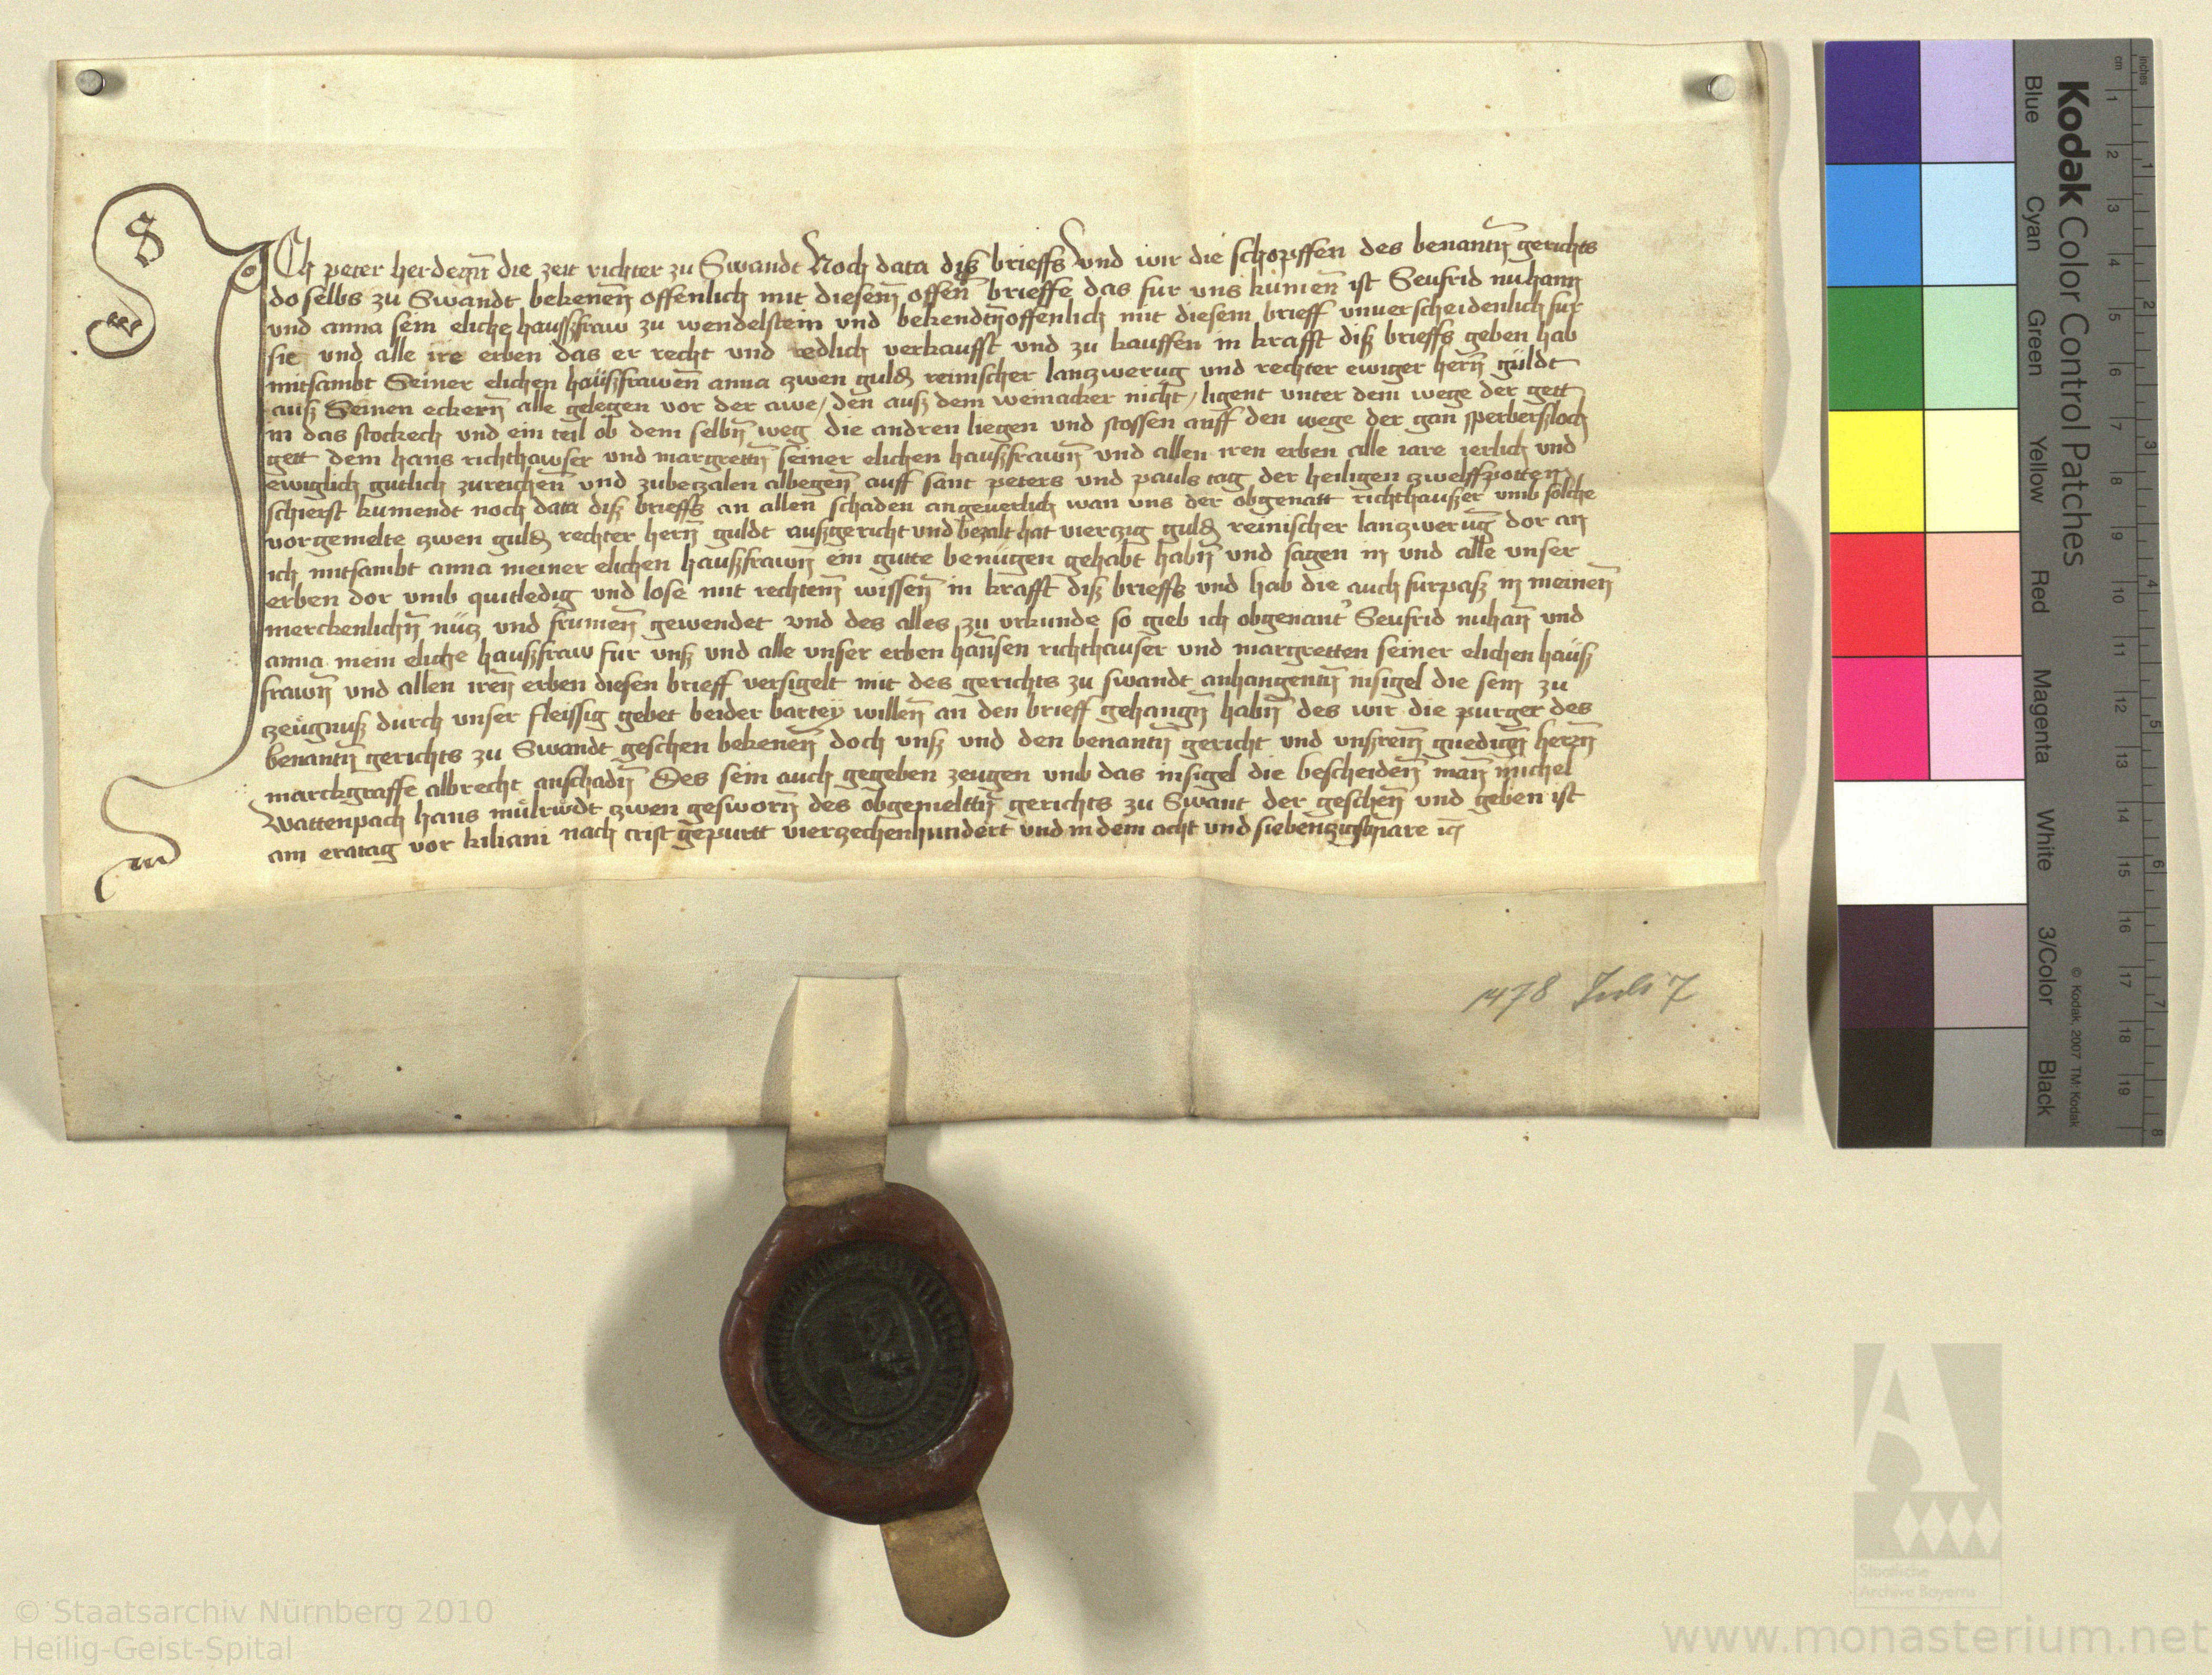 Ich peter herdegñ die zeit richter zu Swandt Noch data diß brieffs und wir die schopffen des benantñ gerichts
do selbs zu Swandt bekenen̄ offenlich mit diesem̄ offen̄ brieffe das fur vns kumen̄ ist Seufrid nuhann
vnd anna sein eliche haußfraw zu wendelstein vnd bekendtn̄ offenlich mit diesem brieff vnuerscheidenlich fur
sie vnd alle ire erben das er recht vnd redlich verkaufft vnd zu kauffen in krafft diß brieffs geben hab
mitsambt Seiner elichen haußfrawen̄ anna zwen guld reinischer lanczwerug vnd rechter ewiger hern̄ güldt
auß Seinen eckern̄ alle gelegen vor der awe / den auß dem weinacker nicht / ligent vnter dem wege der gett
in das stockech vnd ein teil ob dem selbn̄ weg die andren liegen vnd stossen auff den wege der gan sperberßloch
gett dem hans richthawser vnd margrettn̄ seiner elichen haußfrawn̄ vnd allen iren erben alle iare ierlich vnd
ewiglich gutlich zureichen̄ vnd zubetzalen albegen̄ auff sant peters vnd pauls tag der heiligen zwelffpotten
schierst kumendt noch data diß brieffs an allen̄ schaden angeuerlich wan vns der obgenatt richthaußer vmb solche
vorgemelte zwen guld rechter hern̄ guldt außgericht vnd bezalt hat vierczig guld reinischer lanczweruḡ dor an
ich mitsambt anna meiner elichen haußfrawn̄ ein gutte benügen gehabt habn̄ vnd sagen in vnd alle vnser
erben dor vmb quitledig vnd lose mit rechtem̄ wissen̄ in krafft diß brieffs vnd hab die auch furpaß in meinen̄
merckenlichn̄ nücz vnd frumen̄ gewendet vnd des alles zu vrkunde so gieb ich obgenant Seufrid nuhan̄ vnd
anna mein eliche haußfraw fur vnß vnd alle vnser erben hansen richthauser vnd margretten seiner elichen hauß
frawn̄ vnd allen iren̄ erben diesen brieff versigelt mit des gerichts zu swandt anhangentn̄ insigel die sein zu
zeugnuß durch vnser fleissig gebet beider bartey willen̄ an den brieff gehangn̄ habn̄ des wir die purger des
benantn̄ gerichts zu Swandt geschen bekenen̄ doch vnß vnd den benantn̄ gericht vnd vnßrem̄ gnedign̄ herrn̄
marckgraffe albrecht anschadn̄ Des sein auch gegeben zeugen vmb das insigel die bescheiden̄ man̄ michel
Wattenpach hans mulrwdt zwen gesworn̄ des obgemelttn̄ gerichts zu Swant der geschen̄ vnd geben ist
am eratag vor kiliani nach crist gepurtt vierzechenhundert vnd in dem acht vnd siebenzigstn̄ iare
1478 Juli 7
Kodak Color Control Patches
Blue Cyan Green Yellow Red Magenta White 3/Color Black
inches
cm
1 2 3 4 5 6 7 8 9 10 11 12 13 14 15 16 17 18 19
1 2 3 4 5 6 7 8
© Kodak, 2007 TM: Kodak
Staatliche
Archive Bayerns
© Staatsarchiv Nürnberg 2010
Heilig-Geist-Spital
www.monasterium.net